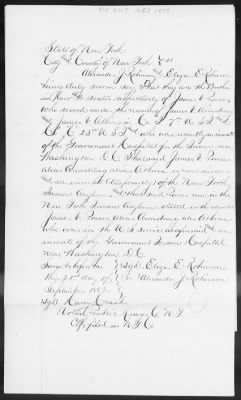 State of New York
City and County of New York SS
Alexander J. Robinson and Eliza E. Robinson
being duly sworn say That they are the Brother
in law & sister respectively of James C. Powers
who served under the name of James C. Armstrong
and James C. Atkins in Co 7" U S I and
Co 23d U.S.I and who was recently an inmate
of the Government Hospital for the Insane near
Washington D.C. That said James C. Powers
alias Armstrong alias Atkins is now an inmate
of the New York
Insane Asylum and that said Powers now in the
New York Insane Asylum stated is the identical
James C. Powers alias Armstrong alias Atkins
who was in the U S service aforesaid and an
inmate of the Government Insane Hospital
near Washington D.C.
Sworn to before me Sgd Eliza E. Robinson
this 21st day of Alexander J. Robinson
September 1882
Sgd Henry
Notary Public Kings Co N.Y.
Ctf. filed in N.Y. Co